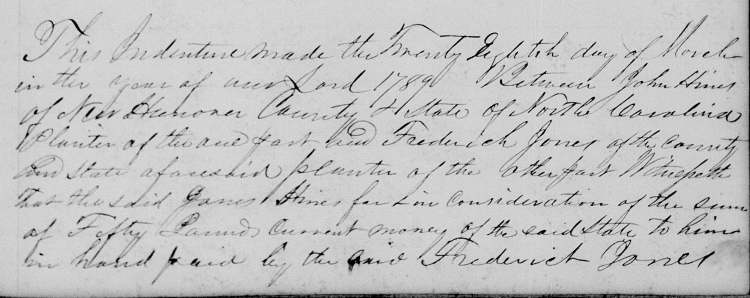 This Indenture made the Twenty Eighth day of March
in the year of our Lord 1789 Between John Hines
of New Hanover County & State of North Carolina
Planter of the one part and Frederick Jones of the County
and State aforesaid planter of the other part Witnesseth
that the said Jones Hines for & in Consideration of the sum
of Fifty Pounds Current money of the said State to him
in hand paid by the said Frederick Jones